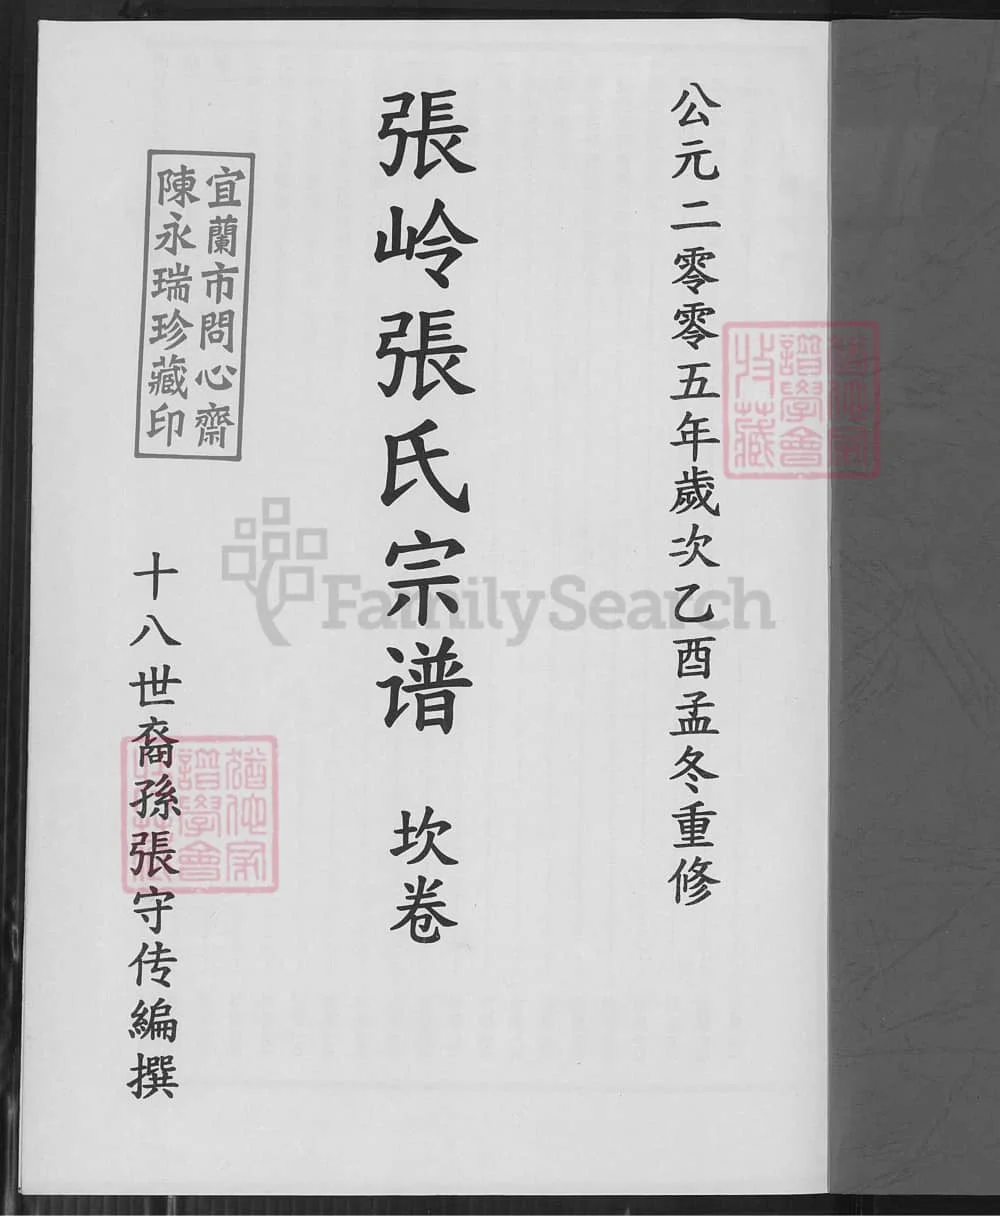 公元二零零五年歲次乙酉孟冬重修
張岭張氏宗谱 坎卷
十八世裔孫張守传編撰
宜蘭市問心齋
陳永瑞珍藏印
譜學會
收藏
譜學會
收藏
FamilySearch